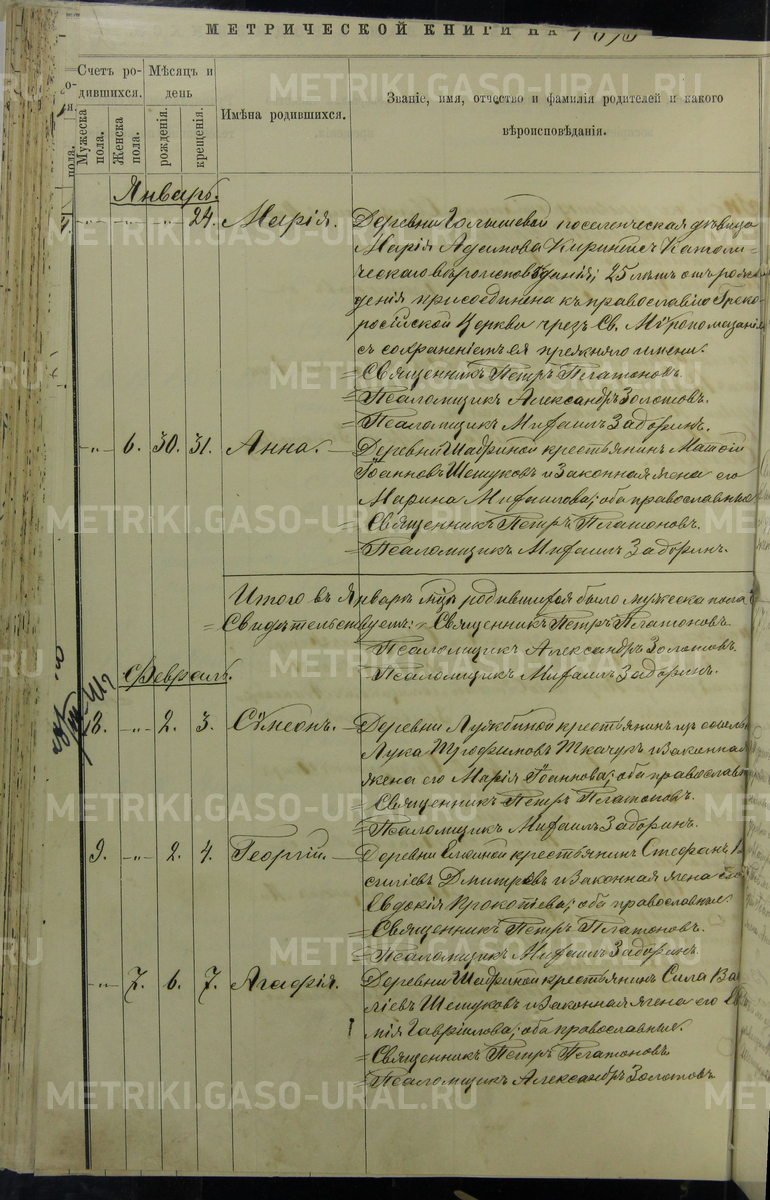 МЕТРИЧЕСКОЙ КНИГИ НА
Счетъ ро-
дившихся.
Мѣсяцъ и
день
Мужеска
пола.
Женска
пола.
рожденія.
крещенія.
Имѣна родившихся.
Званіе, имя, отчество и фамилія родителей и какого
вѣроисповѣданія.
Январь.
24. Марія. Деревни поселенческая дѣвица
Марія Адамова Католи-
ческаго вѣроисповѣданія; 25 лѣтъ отъ рож-
денія присоединена къ православію Греко-
россійской Церкви чрезъ Св. Мѵропомазаніе
съ сохраненіемъ ея прежняго имени.
= Священникъ Петръ Платоновъ.
= Псаломщикъ Александръ Золотовъ.
= Псаломщикъ Михаилъ Задоринъ.
-"- 6. 30. 31. Анна. Деревни Шадриной крестьянинъ Матѳій
Іоанновъ Шешуковъ и законная жена его
Марина Михаилова; оба православные
= Священникъ Петръ Платоновъ.
= Псаломщикъ Михаилъ Задоринъ.
Итого въ Январѣ мцѣ родившихся было мужеска пола
= Свидѣтельствуемъ: = Священникъ Петръ Платоновъ.
Псаломщикъ Александръ Золотовъ.
Псаломщикъ Михаилъ Задоринъ.
Февраль.
8. -"- 2. 3. Сѵмеонъ. Деревни крестьянинъ изъ
Лука Трофимовъ Ткачукъ и законная
жена его Марія Іоаннова; оба православ
= Священникъ Петръ Платоновъ.
= Псаломщикъ Михаилъ Задоринъ.
9. -"- 2. 4. Георгій. Деревни крестьянинъ Стефанъ
Дмитровъ и законная жена его
Евдокія Прокопіева; оба православные.
= Священникъ Петръ Платоновъ.
= Псаломщикъ Михаилъ Задоринъ.
-"- 7. 6. 7. Агафія. Деревни Шадриной крестьянинъ Сила Ва
ліевъ Шешуковъ и законная жена его
мія Гавріилова; оба православные.
= Священникъ Петръ Платоновъ
= Псаломщикъ Александръ Золотовъ
METRIKI.GASO-URAL.RU